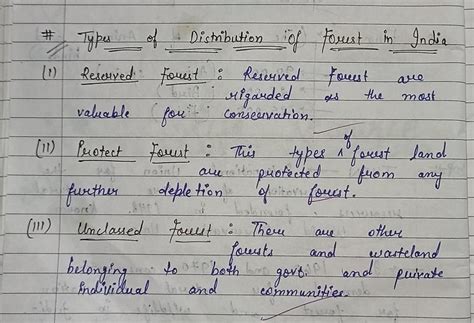 # Types of Distribution of Forest in India
(I) Reserved Forest : Reserved Forest are
rigarded as the most
valuable for conservation.
(II) Protect Forest : This types of forest land
are protected from any
further depletion of forest.
(III) Unclassed Forest : There are other
forests and wasteland
belonging to both govt. and private
individual and communities.